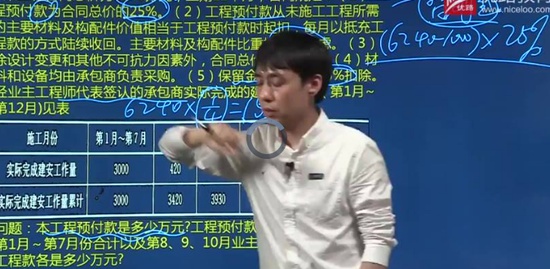 优路
www.niceloo.
程预付款为合同总价的25%。（2）工程预付款从未施工工程所需
的主要材料及构配件价值相当于工程预付款时起扣，每月以抵充工
程款的方式陆续收回。主要材料及构配件比重
（3）
除设计变更和其他不可抗力因素外，合同总价
（4）材
料和设备均由承包商负责采购。（5）保留金
扣除。
经业主工程师代表签认的承包商实际完成的建
第1月～
第12月)见表
(6240-100)×25%
6240×
施工月份
第1月～第7月
实际完成建安工作量
3000
420
实际完成建安工作量累计
3000
3420
3930
问题：本工程预付款是多少万元?工程预付款
第1月～第7月份合计以及第8、9、10月业主
工程款各是多少万元?